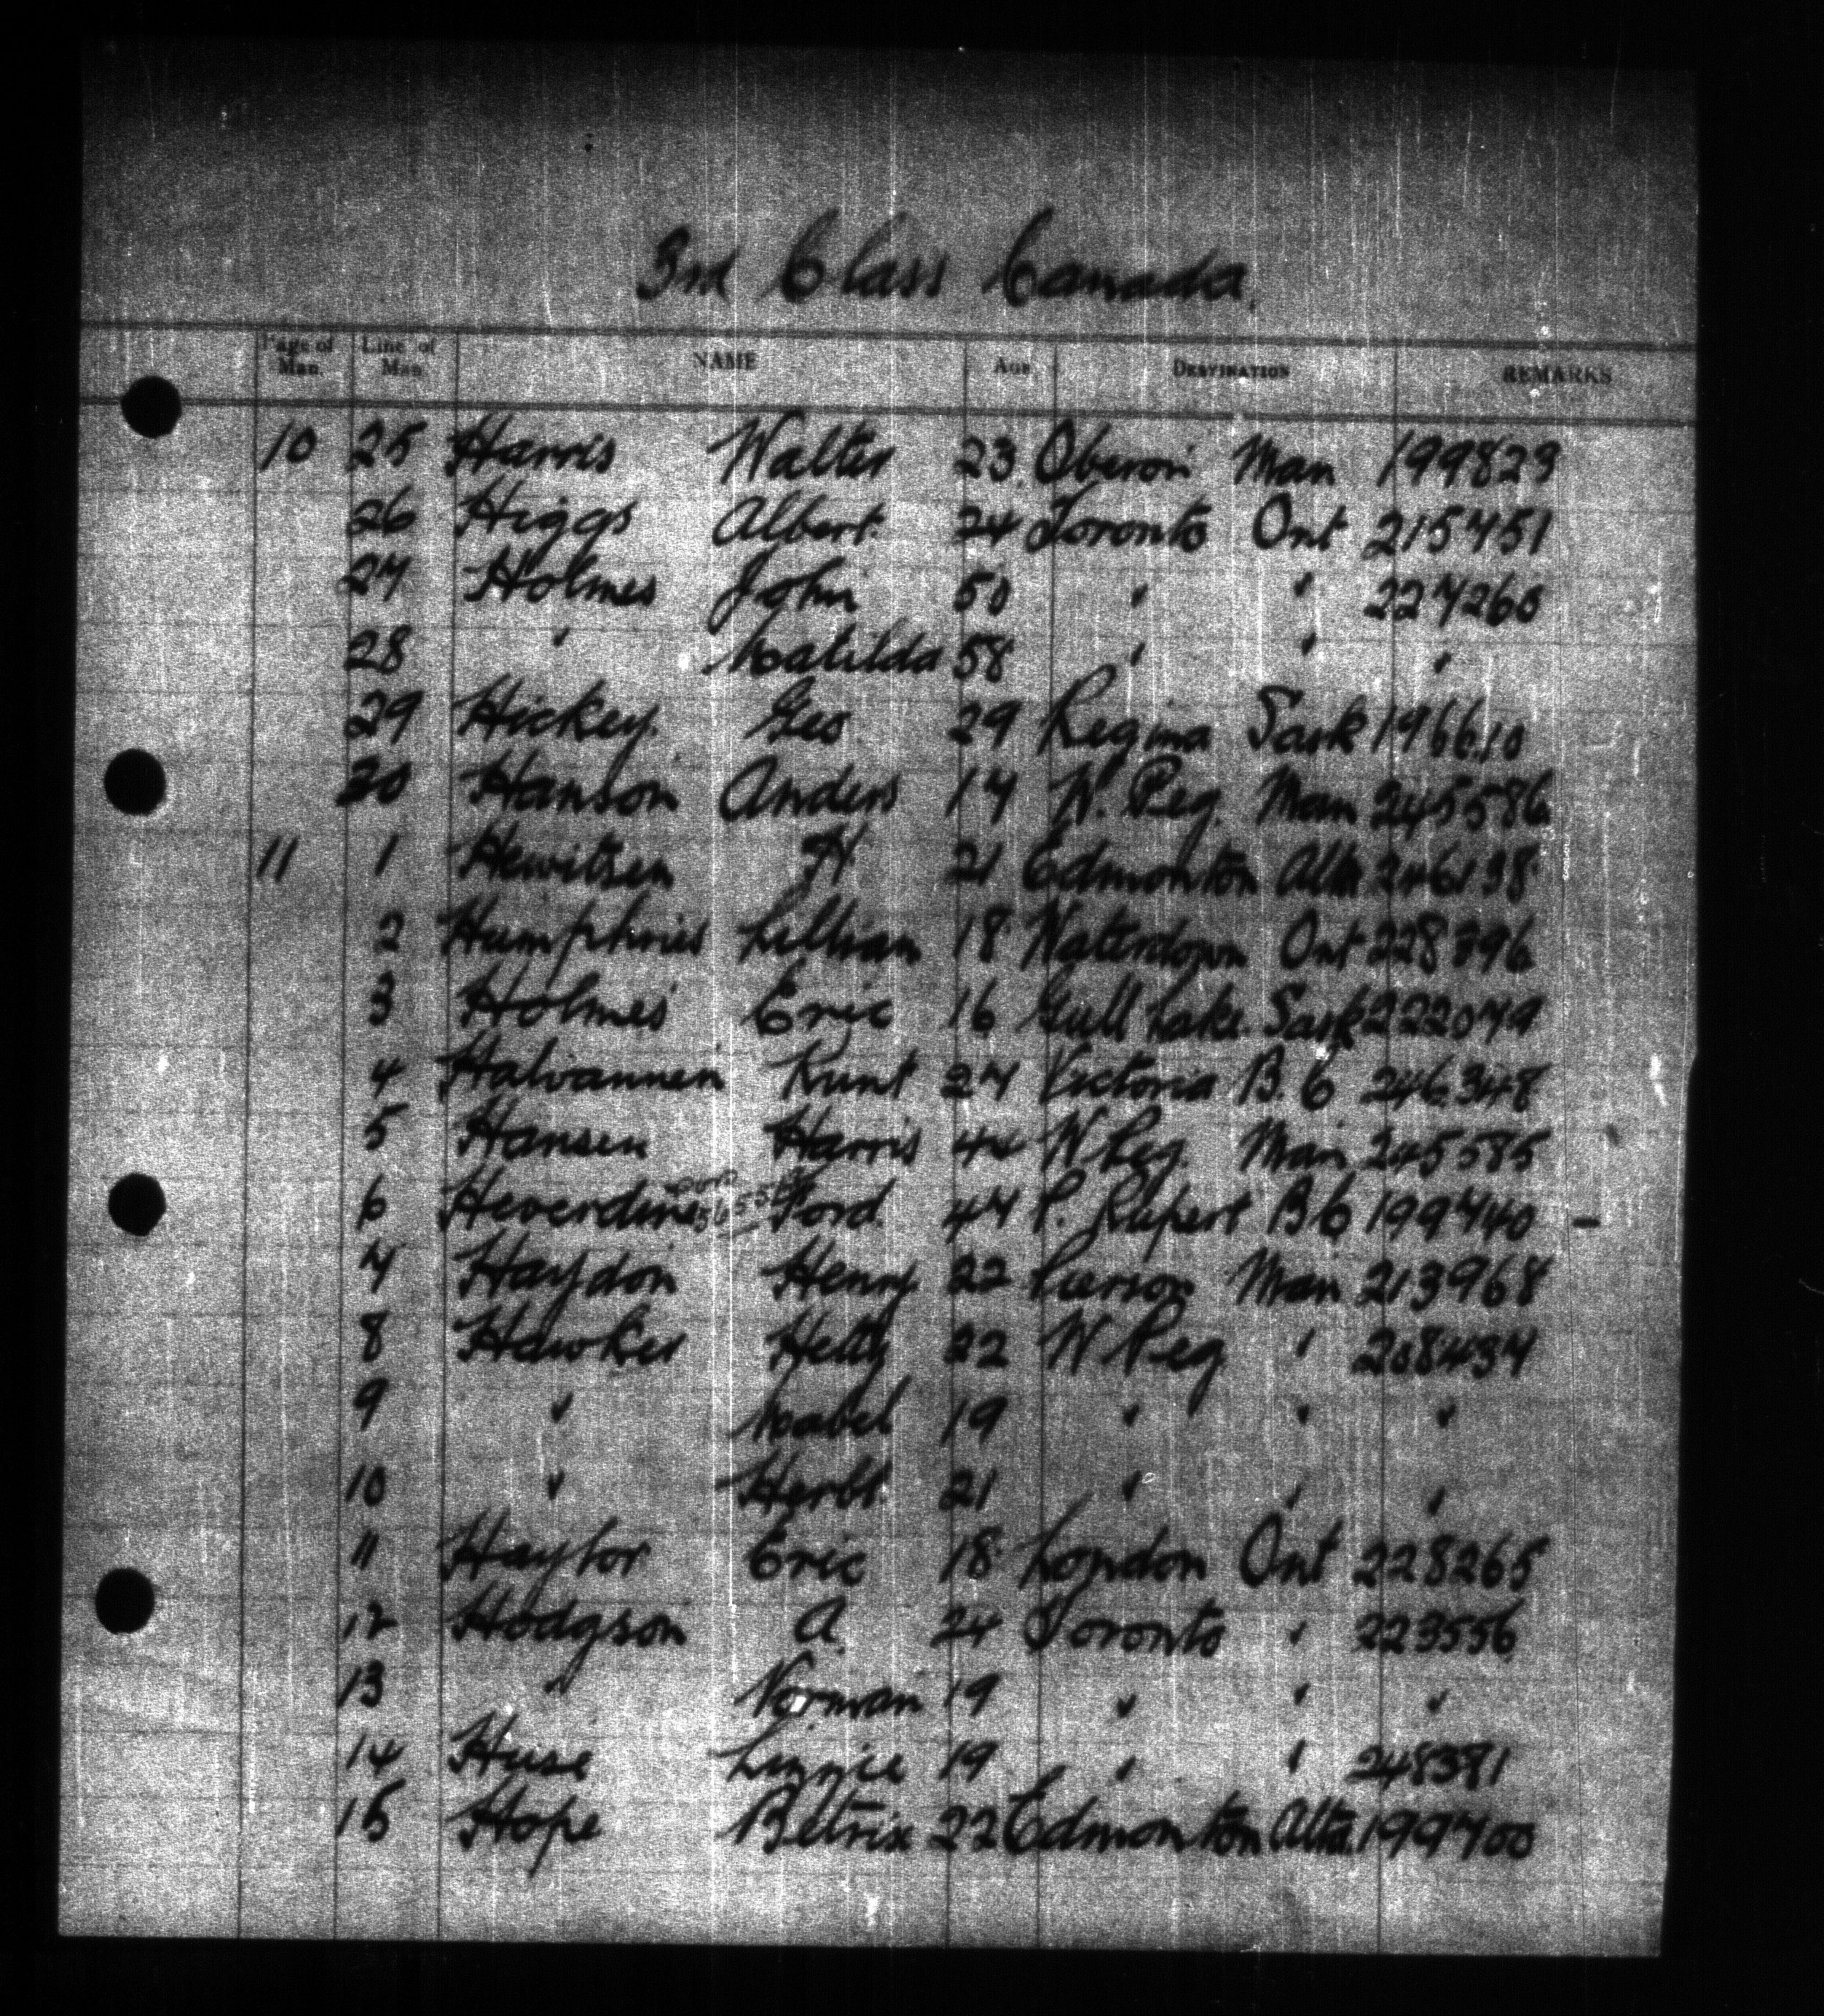 3rd Class Canada.
Page of Man. Line of Man. NAME Age DESTINATION REMARKS
10 25 Harris Walter 23 Oberon Man 199823
26 Higgs Albert. 24 Toronto Ont 215751
27 Holmes John 50 " " 227260
28 " Matilda 58 " " "
29 Hickey. Geo 29 Regina Sask 196610
30 Hanson Anders 17 W. Peg. Man 245586
11 1 Hewitsen H. 21 Edmonton Alta 246138
2 Humphries Lillian 18 Waterdown Ont 228396
3 Holmes Eric 16 Gull Lake. Sask 222079
4 Halvannen Kunt 27 Victoria B.C 246348
5 Hansen Harris 44 W Peg. Man 245585
6 Heverdine Ford. 47 P. Rupert BC 199740 -
7 Haydon Henry 22 Pierson Man 213968
8 Hawker Hetty 22 W Peg " 208437
9 " Mabel 19 " " "
10 " Herbt. 21 " " "
11 Haylor Eric 18 London Ont 228265
12 Hodgson A. 24 Toronto " 223556
13 " Norman 19 " " "
14 Huse Lizzie 19 " " 248381
15 Hope Betrix 22 Edmonton Alta. 199700